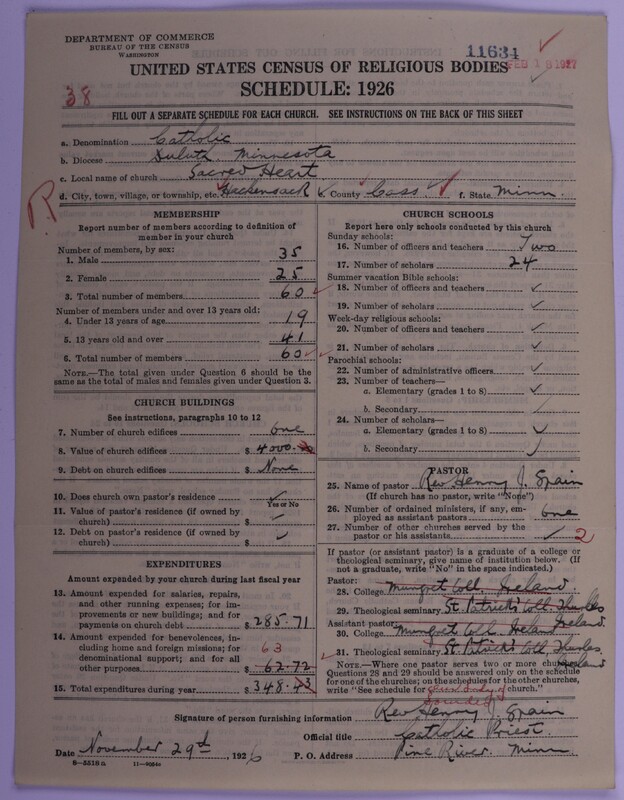 DEPARTMENT OF COMMERCE
BUREAU OF THE CENSUS
WASHINGTON
11634
FEB 18 1927
UNITED STATES CENSUS OF RELIGIOUS BODIES
SCHEDULE: 1926
38
FILL OUT A SEPARATE SCHEDULE FOR EACH CHURCH. SEE INSTRUCTIONS ON THE BACK OF THIS SHEET
a. Denomination Catholic
b. Diocese Duluth Minnesota
c. Local name of church Sacred Heart
d. City, town, village, or township, etc. Hackensack County Cass f. State Minn.
R
MEMBERSHIP
Report number of members according to definition of member in your church
Number of members, by sex:
1. Male 35
2. Female 25
3. Total number of members 60
Number of members under and over 13 years old:
4. Under 13 years of age 19
5. 13 years old and over 41
6. Total number of members 60
NOTE.—The total given under Question 6 should be the same as the total of males and females given under Question 3.
CHURCH BUILDINGS
See instructions, paragraphs 10 to 12
7. Number of church edifices one
8. Value of church edifices $ 4000.
9. Debt on church edifices $ None
10. Does church own pastor's residence ✓
Yes or No
11. Value of pastor's residence (if owned by church) $
12. Debt on pastor's residence (if owned by church) $
EXPENDITURES
Amount expended by your church during last fiscal year
13. Amount expended for salaries, repairs, and other running expenses; for improvements or new buildings; and for payments on church debt $ 285.71
14. Amount expended for benevolences, including home and foreign missions; for denominational support; and for all other purposes $ 62.72
63
15. Total expenditures during year $ 348.43
CHURCH SCHOOLS
Report here only schools conducted by this church
Sunday schools:
16. Number of officers and teachers Two
17. Number of scholars 24
Summer vacation Bible schools:
18. Number of officers and teachers ✓
19. Number of scholars ✓
Week-day religious schools:
20. Number of officers and teachers ✓
21. Number of scholars ✓
Parochial schools:
22. Number of administrative officers ✓
23. Number of teachers—
a. Elementary (grades 1 to 8) ✓
b. Secondary ✓
24. Number of scholars—
a. Elementary (grades 1 to 8) ✓
b. Secondary ✓
PASTOR
25. Name of pastor Rev Henry J. Spain
(If church has no pastor, write "None")
26. Number of ordained ministers, if any, employed as assistant pastors one
27. Number of other churches served by the pastor or his assistants ✓ 2
If pastor (or assistant pastor) is a graduate of a college or theological seminary, give name of institution below. (If not a graduate, write "No" in the space indicated.)
Pastor:
28. College Mungret Coll. Ireland.
29. Theological seminary St. Patrick's Coll. Thurles Ireland.
Assistant pastor:
30. College Mungret Coll. Ireland
31. Theological seminary St Patrick's Coll. Thurles. Ireland
NOTE.—Where one pastor serves two or more churches, Questions 28 and 29 should be answered only on the schedule for one of the churches; on the schedules for the other churches, write "See schedule for church."
Signature of person furnishing information Rev Henry J. Spain
Official title Catholic Priest
Date November 29th, 1926 P. O. Address Pine River. Minn
8—5518a 11—9084a